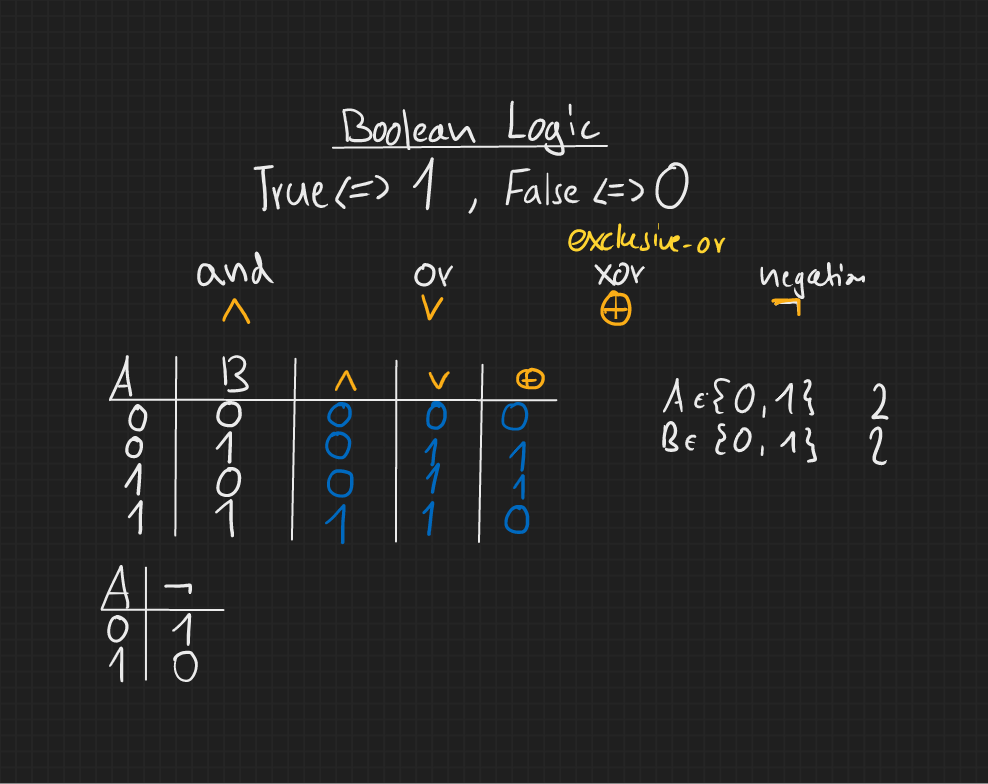 Boolean Logic
True <=> 1 , False <=> 0
exclusive-or
and or xor negation
∧ ∨ ⊕ ¬
A B ∧ ∨ ⊕
0 0 0 0 0
0 1 0 1 1
1 0 0 1 1
1 1 1 1 0
A ∈ {0, 1} 2
B ∈ {0, 1} 2
A ¬
0 1
1 0